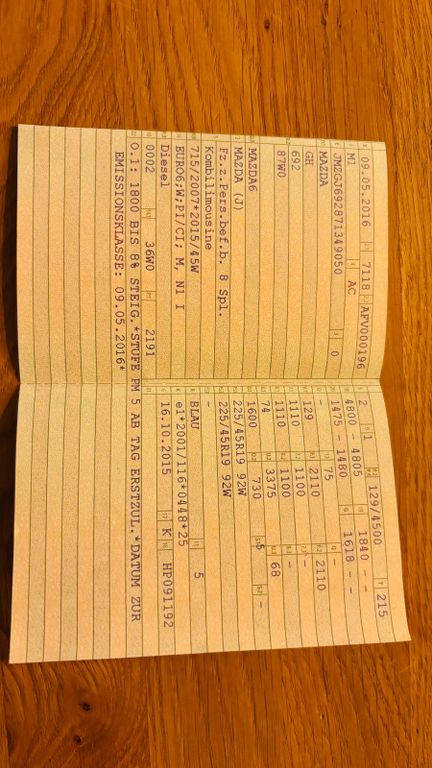 09.05.2016 7118 AFV000196
M1 AC
JMZGJ692871349050 0
MAZDA
GH
692
87W0
MAZDA6
MAZDA (J)
Fz.z.Pers.bef.b. 8 Spl.
Kombilimousine
715/2007*2015/45W
EURO6;W;PI/CI; M, N1 I
Diesel
0002 36W0 2191
2 1 129/4500 215
4800 - 4805 1840 - -
1475 - 1480 1618 - -
- 75 -
129 2110 2110
1110 1100 - -
1110 1100 - -
74 3375 68
1600 730 5 -
225/45R19 92W
225/45R19 92W
-
BLAU 5
e1*2001/116*0448*25
16.10.2015 K HP091192
O.1: 1800 BIS 8% STEIG.*STUFE PM 5 AB TAG ERSTZUL.*DATUM ZUR
EMISSIONSKLASSE: 09.05.2016*